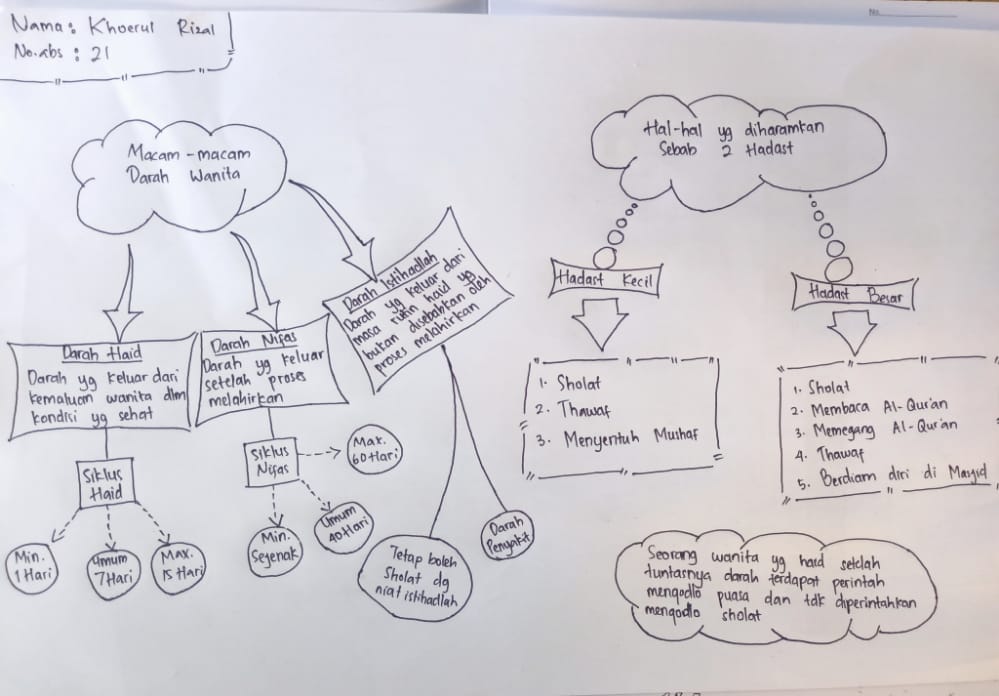 No.
Nama : Khoerul Rizal
No.abs : 21
Macam - macam
Darah Wanita
Darah Haid
Darah yg keluar dari
kemaluan wanita dlm
kondisi yg sehat
Siklus
Haid
Min.
1 Hari
Umum
7 Hari
Max.
15 Hari
Darah Nifas
Darah yg keluar
setelah proses
melahirkan
Siklus
Nifas
Max.
60 Hari
Min.
Sejenak
Umum
40 Hari
Darah Istihadlah
Darah yg keluar dari
masa rutin haid yg
bukan disebabkan oleh
proses melahirkan
Tetap boleh
Sholat dg
niat istihadlah
Darah
Penyakit
Hal-hal yg diharamkan
Sebab 2 Hadast
Hadast Kecil
1. Sholat
2. Thawaf
3. Menyentuh Mushaf
Hadast Besar
1. Sholat
2. Membaca Al-Qur'an
3. Memegang Al-Qur'an
4. Thawaf
5. Berdiam diri di Masjid
Seorang wanita yg haid setelah
tuntasnya darah terdapat perintah
mengodlo puasa dan tdk diperintahkan
mengodlo sholat